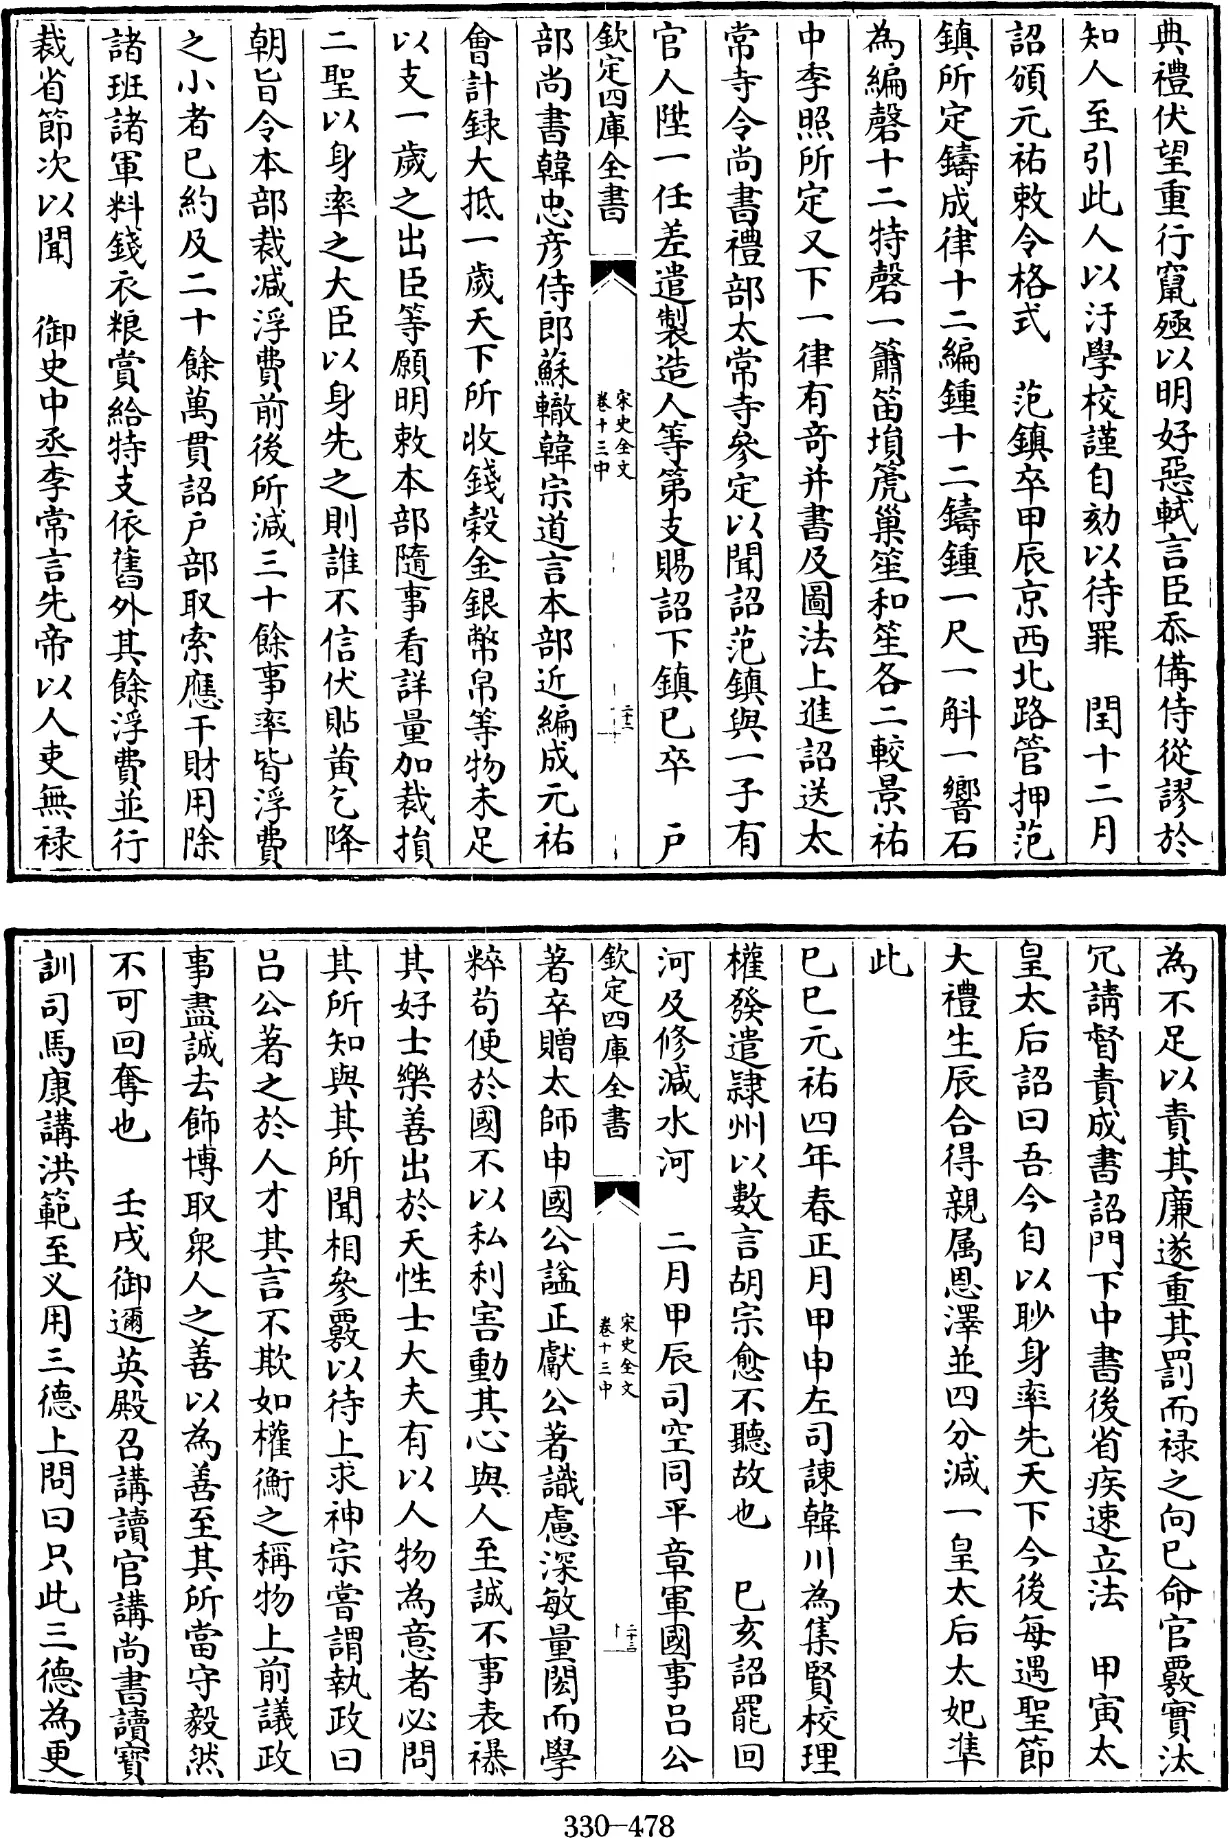 典禮伏望重行竄殛以明好惡軾言臣忝備侍從謬於
知人至引此人以汙學校謹自劾以待罪　閏十二月
詔頒元祐敕令格式　范鎮卒甲辰京西北路管押范
鎮所定鑄成律十二編鍾十二鑄鍾一尺一斛一響石
為編磬十二特磬一簫笛塤箎巢笙和笙各二較景祐
中李照所定又下一律有奇并書及圖法上進詔送太
常寺令尚書禮部太常寺參定以聞詔范鎮與一子有
官人陞一任差遣製造人等第支賜詔下鎮已卒　户
欽定四庫全書
宋史全文
卷十三中
二十二
部尚書韓忠彦侍郎蘇轍韓宗道言本部近編成元祐
會計録大抵一歲天下所收錢穀金銀幣帛等物未足
以支一歲之出臣等願明敕本部隨事看詳量加裁損
二聖以身率之大臣以身先之則誰不信伏貼黄乞降
朝旨令本部裁減浮費前後所減三十餘事率皆浮費
之小者已約及二十餘萬貫詔户部取索應干財用除
諸班諸軍料錢衣粮賞給特支依舊外其餘浮費並行
裁省節次以聞　御史中丞李常言先帝以人吏無禄
為不足以責其廉遂重其罰而禄之向已命官覈實汰
冗請督責成書詔門下中書後省疾速立法　甲寅太
皇太后詔曰吾今自以眇身率先天下今後每遇聖節
大禮生辰合得親属恩澤並四分減一皇太后太妃準
此
己巳元祐四年春正月甲申左司諫韓川為集賢校理
權發遣隸州以數言胡宗愈不聽故也　己亥詔罷回
河及修減水河　二月甲辰司空同平章軍國事吕公
欽定四庫全書
宋史全文
卷十三中
二十三
著卒贈太師申國公諡正獻公著識慮深敏量閎而學
粹苟便於國不以私利害動其心與人至誠不事表襮
其好士樂善出於天性士大夫有以人物為意者必問
其所知與其所聞相參覈以待上求神宗嘗謂執政曰
吕公著之於人才其言不欺如權衡之稱物上前議政
事盡誠去飾博取衆人之善以為善至其所當守毅然
不可回奪也　壬戌御邇英殿召講讀官講尚書讀寳
訓司馬康講洪範至乂用三德上問曰只此三德為更
330—478